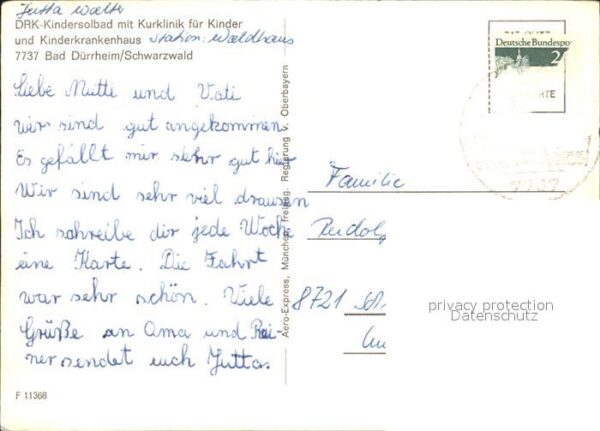 Jutta Walte
DRK-Kindersolbad mit Kurklinik für Kinder
und Kinderkrankenhaus Station: Waldhaus
7737 Bad Dürrheim/Schwarzwald
Liebe Mutti und Vati
wir sind gut angekommen.
Es gefällt mir sehr gut hier
Wir sind sehr viel drausen
Ich schreibe dir jede Woche
eine Karte. Die Fahrt
war sehr schön. Viele
Grüße an Oma und Rai-
ner sendet euch Jutta.
F 11368
Aero-Express, München, Freigeg. Regierung v. Oberbayern
Deutsche Bundespo
2
7737
Familie
Rudol
8721
privacy protection
Datenschutz